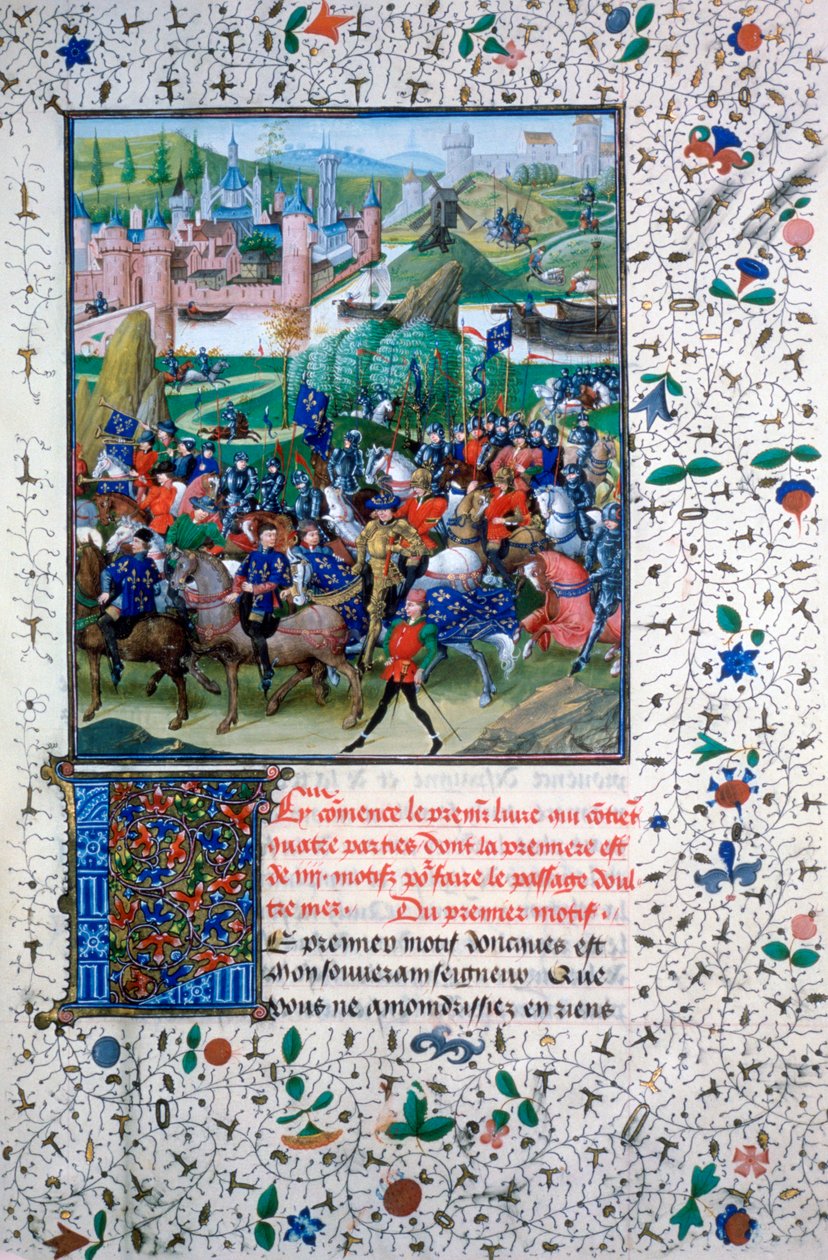 Cy cõmence le premr̃ liure qui cõtiet
quatre parties dont la premiere est
de iiij. motifz po᷑ faire le passage doul
tre mer. Du premier motif.
Le premier motif doncques est
mon souuerain seigneur Que
vous ne amoindrissiez en riens